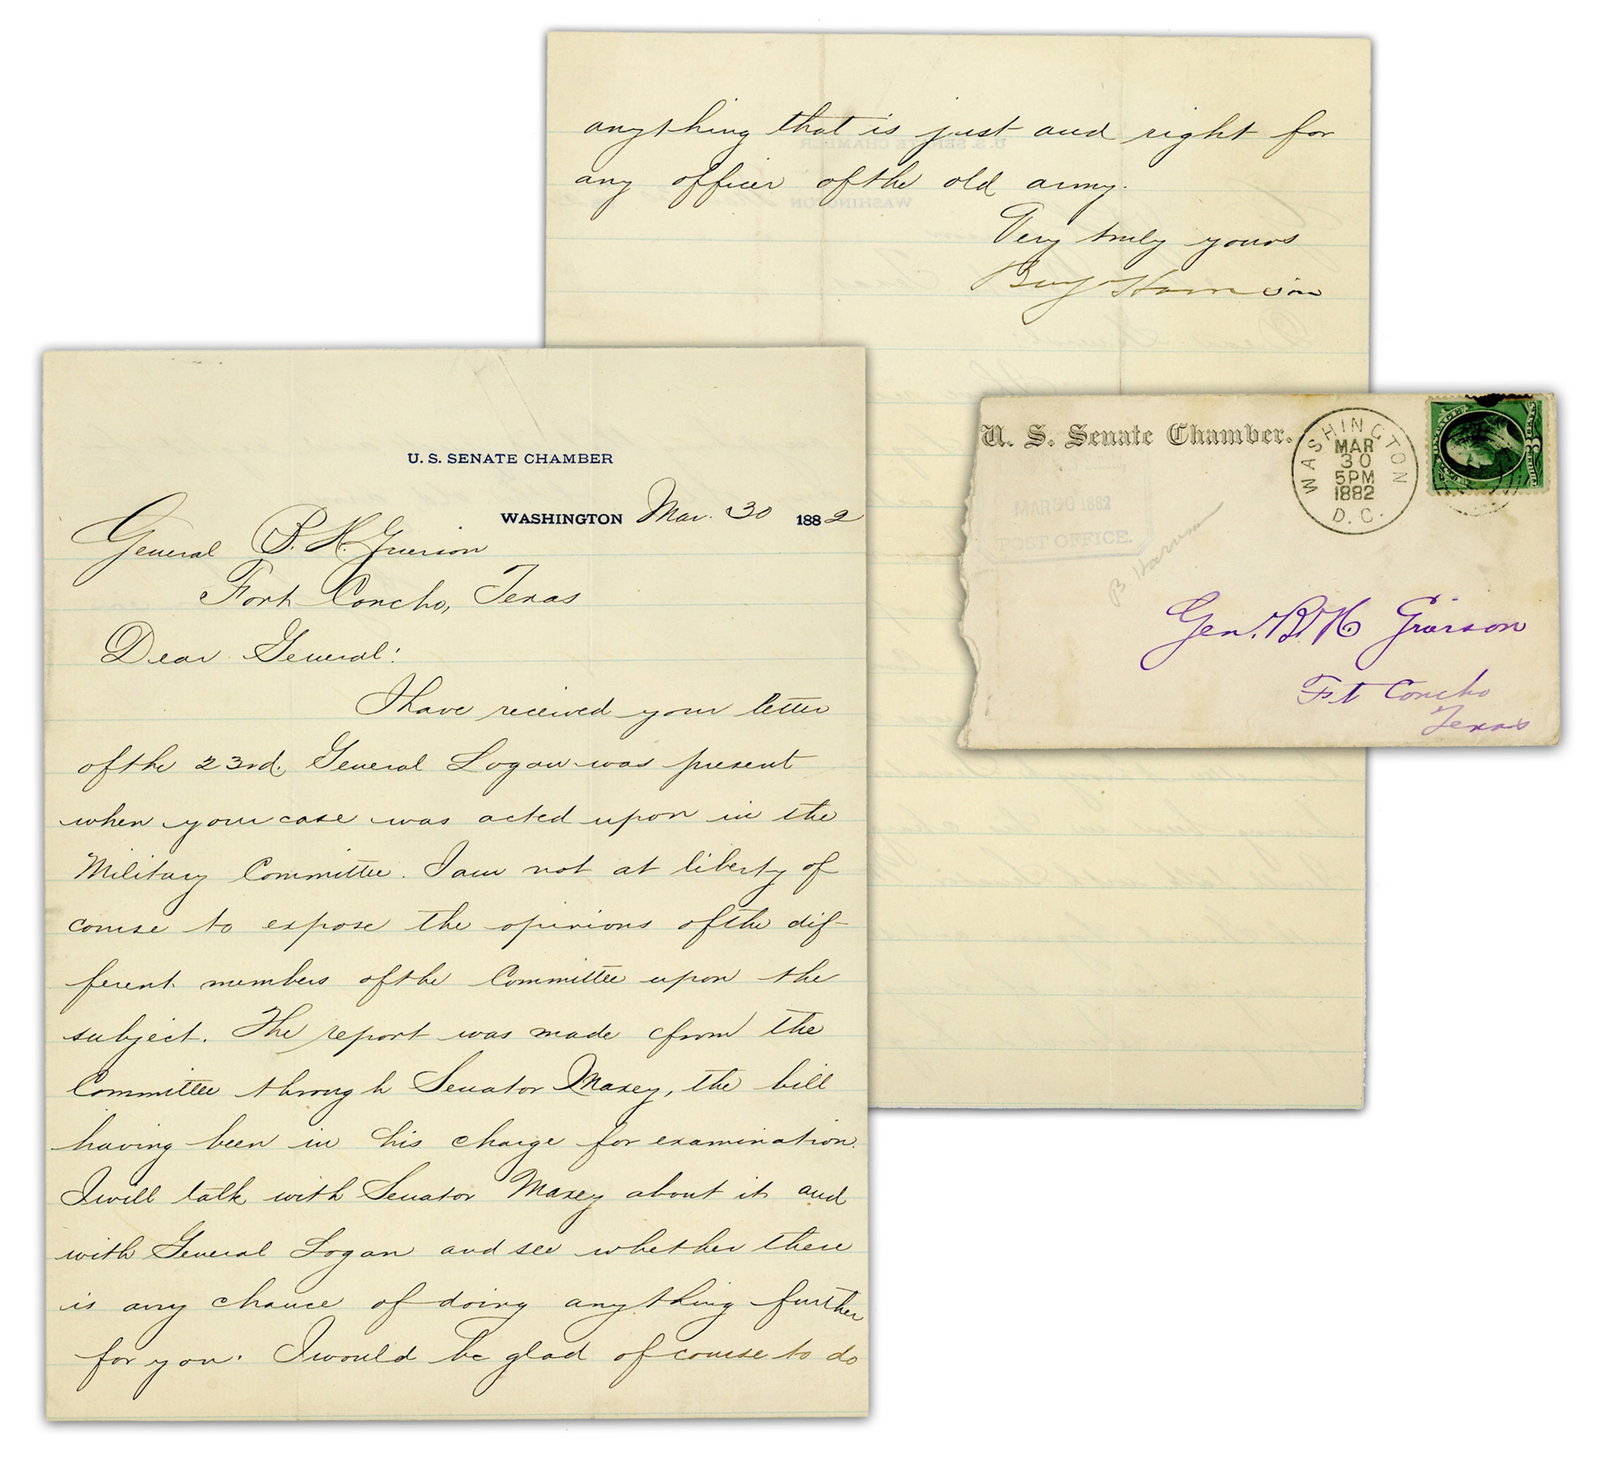 U. S. SENATE CHAMBER
WASHINGTON Mar. 30 1882
General B. H. Grierson
Fort Concho, Texas
Dear General:
I have received your letter
of the 23rd. General Logan was present
when your case was acted upon in the
Military Committee. I am not at liberty of
course to expose the opinions of the dif-
ferent members of the Committee upon the
subject. The report was made from the
Committee through Senator Maxey, the bill
having been in his charge for examination.
I will talk with Senator Maxey about it and
with General Logan and see whether there
is any chance of doing anything further
for you. I would be glad of course to do
anything that is just and right for
any officer of the old army.
Very truly yours
Benj Harrison
U. S. Senate Chamber.
WASHINGTON
MAR
30
5PM
1882
D. C.
MAR 30 1882
POST OFFICE.
B. Harrison
Gen. B. H. Grierson
Ft Concho
Texas